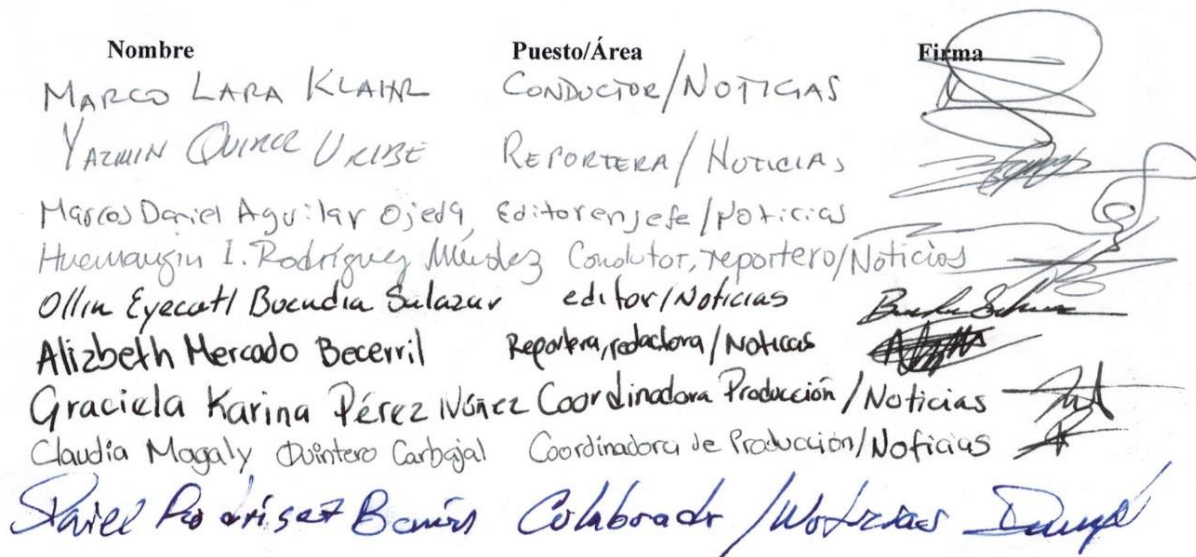 Nombre Puesto/Área Firma
MARCO LARA KLAHR CONDUCTOR/NOTICIAS
YAZMIN QUIROZ URIBE REPORTERA/NOTICIAS
Marcos Daniel Aguilar Ojeda, Editor en jefe/Noticias
Huemanzin I. Rodríguez Méndez Condutor, reportero/Noticias
Ollin Eyecatl Buendia Salazar editor/Noticias
Alizbeth Mercado Becerril Reportera, redactora/Noticas
Graciela Karina Pérez Núñez Coordinadora Producción/Noticias
Claudia Magaly Quintero Carbajal Coordinadora de Producción/Noticias
Rodriguez Colaborador/Noticias